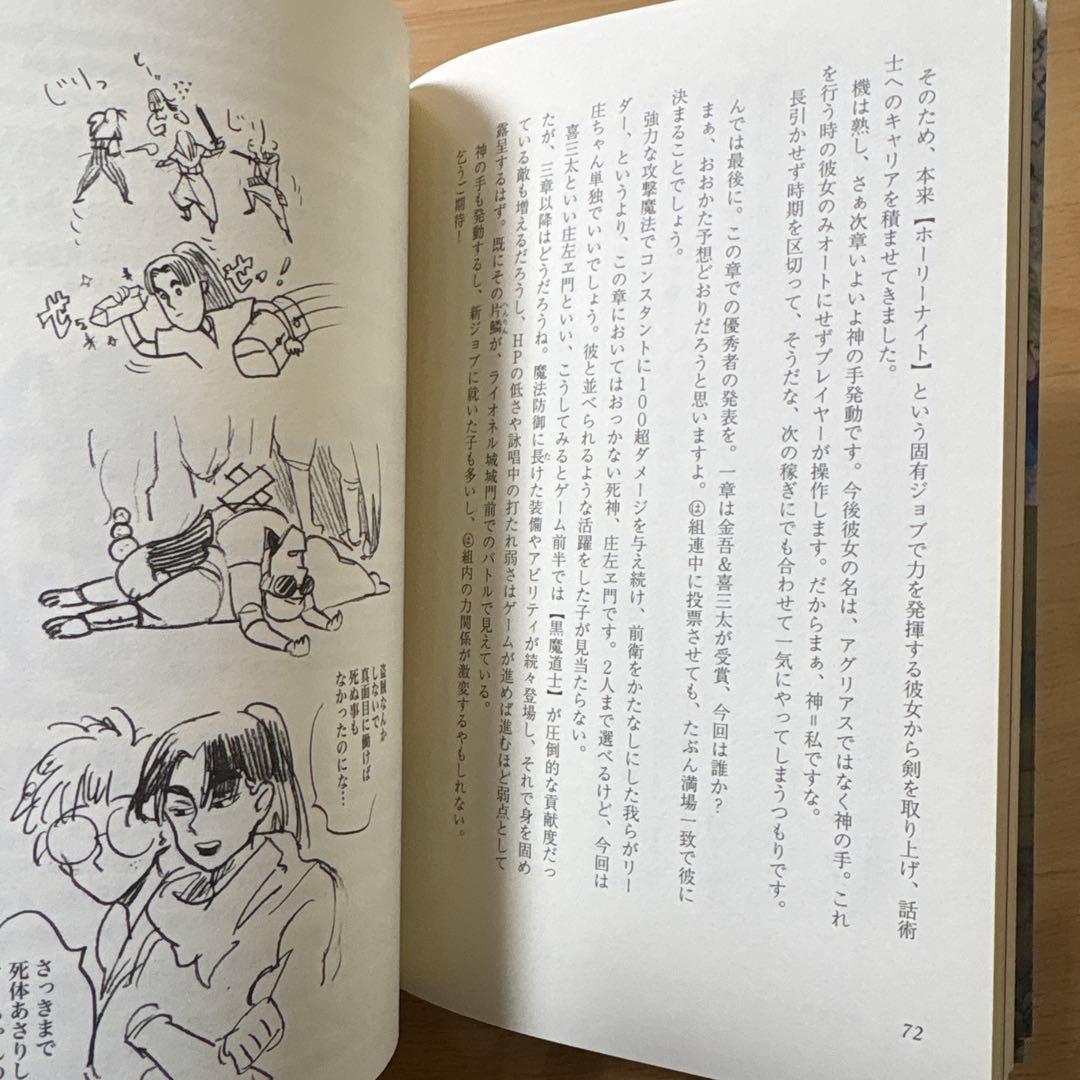 そのため、本来【ホーリーナイト】という固有ジョブで力を発揮する彼女から剣を取り上げ、話術
士へのキャリアを積ませてきました。
機は熟し、さぁ次章いよいよ神の手発動です。今後彼女の名は、アグリアスではなく神の手。これ
を行う時の彼女のみオートにせずプレイヤーが操作します。だからまぁ、神＝私ですな。
長引かせず時期を区切って、そうだな、次の稼ぎにでも合わせて一気にやってしまうつもりです。
んでは最後に。この章での優秀者の発表を。一章は金吾＆喜三太が受賞、今回は誰か？
まぁ、おおかた予想どおりだろうと思いますよ。は組連中に投票させても、たぶん満場一致で彼に
決まることでしょう。
強力な攻撃魔法でコンスタントに100超ダメージを与え続け、前衛をかたなしにした我らがリー
ダー、というより、この章においてはおっかない死神、庄左ヱ門です。2人まで選べるけど、今回は
庄ちゃん単独でいいでしょう。彼と並べられるような活躍をした子が見当たらない。
喜三太といい庄左ヱ門といい、こうしてみるとゲーム前半では【黒魔道士】が圧倒的な貢献度だっ
たが、三章以降はどうだろうね。魔法防御に長けた装備やアビリティが続々登場し、それで身を固め
ている敵も増えるだろうし、HPの低さや詠唱中の打たれ弱さはゲームが進めば進むほど弱点として
露呈するはず。既にその片鱗が、ライオネル城城門前でのバトルで見えている。
神の手も発動するし、新ジョブに就いた子も多いし、は組内の力関係が激変するやもしれない。
乞うご期待！
た
へんりん
72
と〜っ
じりっ
じりっ
せっ！
せっ
盗賊なんか
しないで
真面目に働けば
死ぬ事も
なかったのにな…
さっきまで
死体あさりし